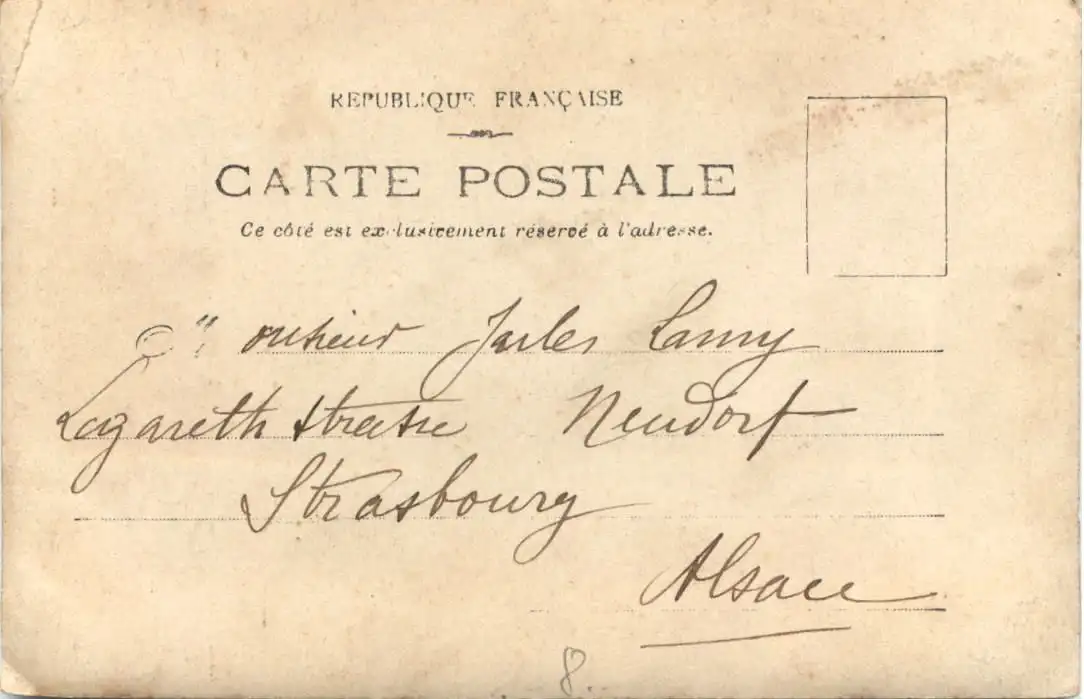 REPUBLIQUE FRANÇAISE
CARTE POSTALE
Ce côté est exclusivement réservé à l'adresse.
Monsieur Jules Lamy
Lazareth Strasse Neudorf
Strasbourg
Alsace
8.